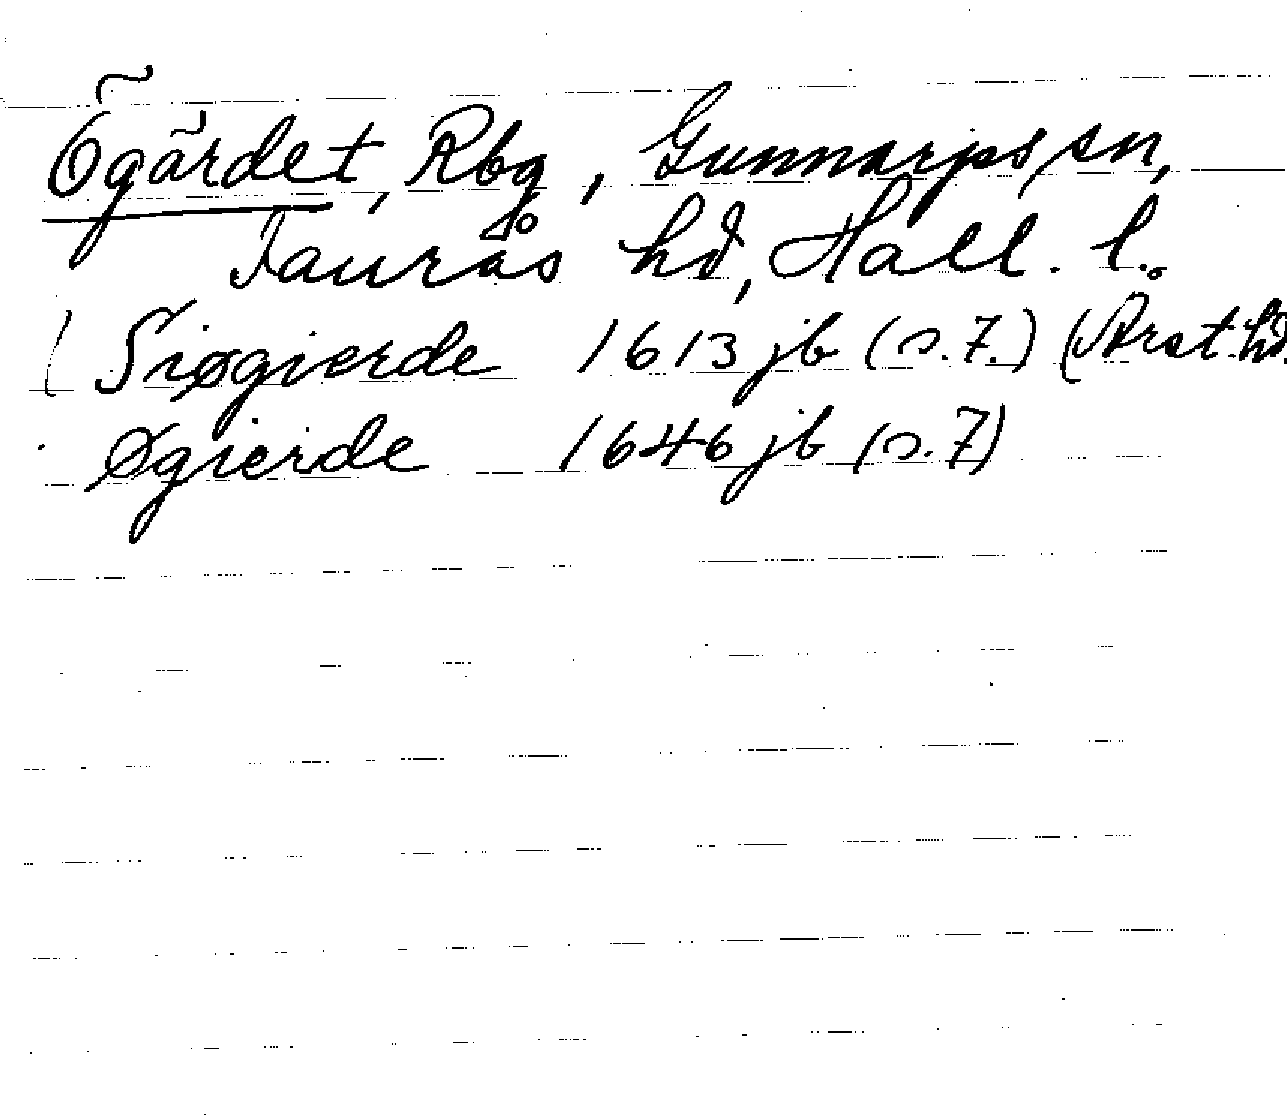 Ögärdet, Rbg, Gunnarps sn,
Faurås hd, Hall. l.
( Siøgierde 1613 jb (s. 7.) (Årst hd
Øgierde 1646 jb (s. 7)